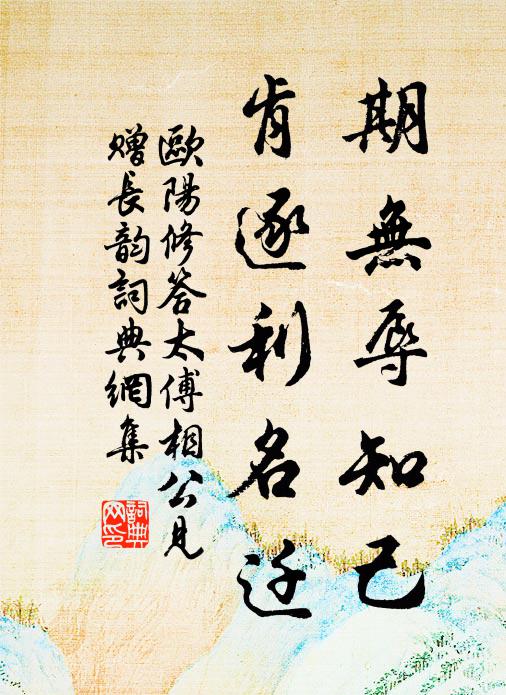 期無辱知己
肯逐利名迁
歐陽修答太傅相公見
贈長韵詞典網集
詞典
网印